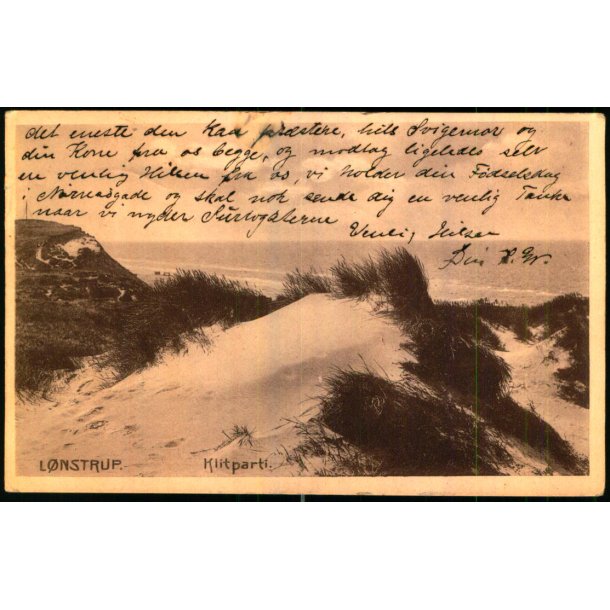 det eneste den kan præstere, hils Svigermor og
din Kone fra os begge, og modtag ligeledes selv
en venlig Hilsen fra os, vi holder din Fødselsdag
i Nørregade og skal nok sende dig en venlig Tanke
naar vi nyder Surrogaterne
Venlig Hilsen
Din
LØNSTRUP. Klitparti.